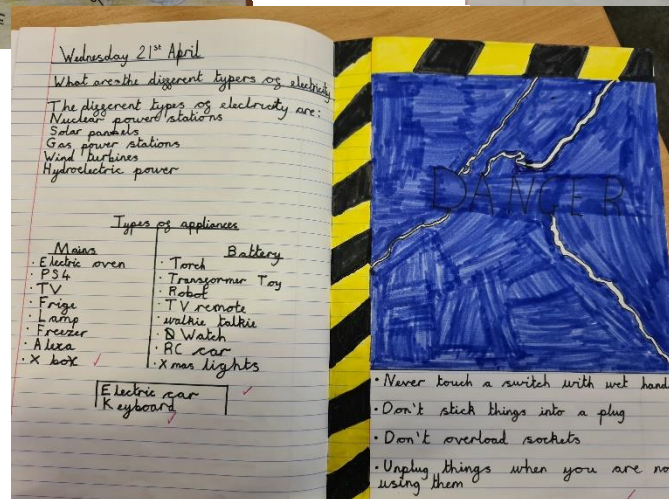 Wednesday 21st April
What are the different typers of electricity
The different types of electricty are:
Nuclear power stations
Solar pannels
Gas power stations
Wind turbines
Hydroelectric power
Types of appliances
Mains
· Electric oven
· PS4
· TV
· Frige
· Lamp
· Freezer
· Alexa
· X box
Battery
· Torch
· Transformer Toy
· Robot
· TV remote
· walkie talkie
· Watch
· RC car
· Xmas lights
Electric car
Keyboard
DANGER
· Never touch a switch with wet hand
· Don't stick things into a plug
· Don't overload sockets
· Unplug things when you are no
using them